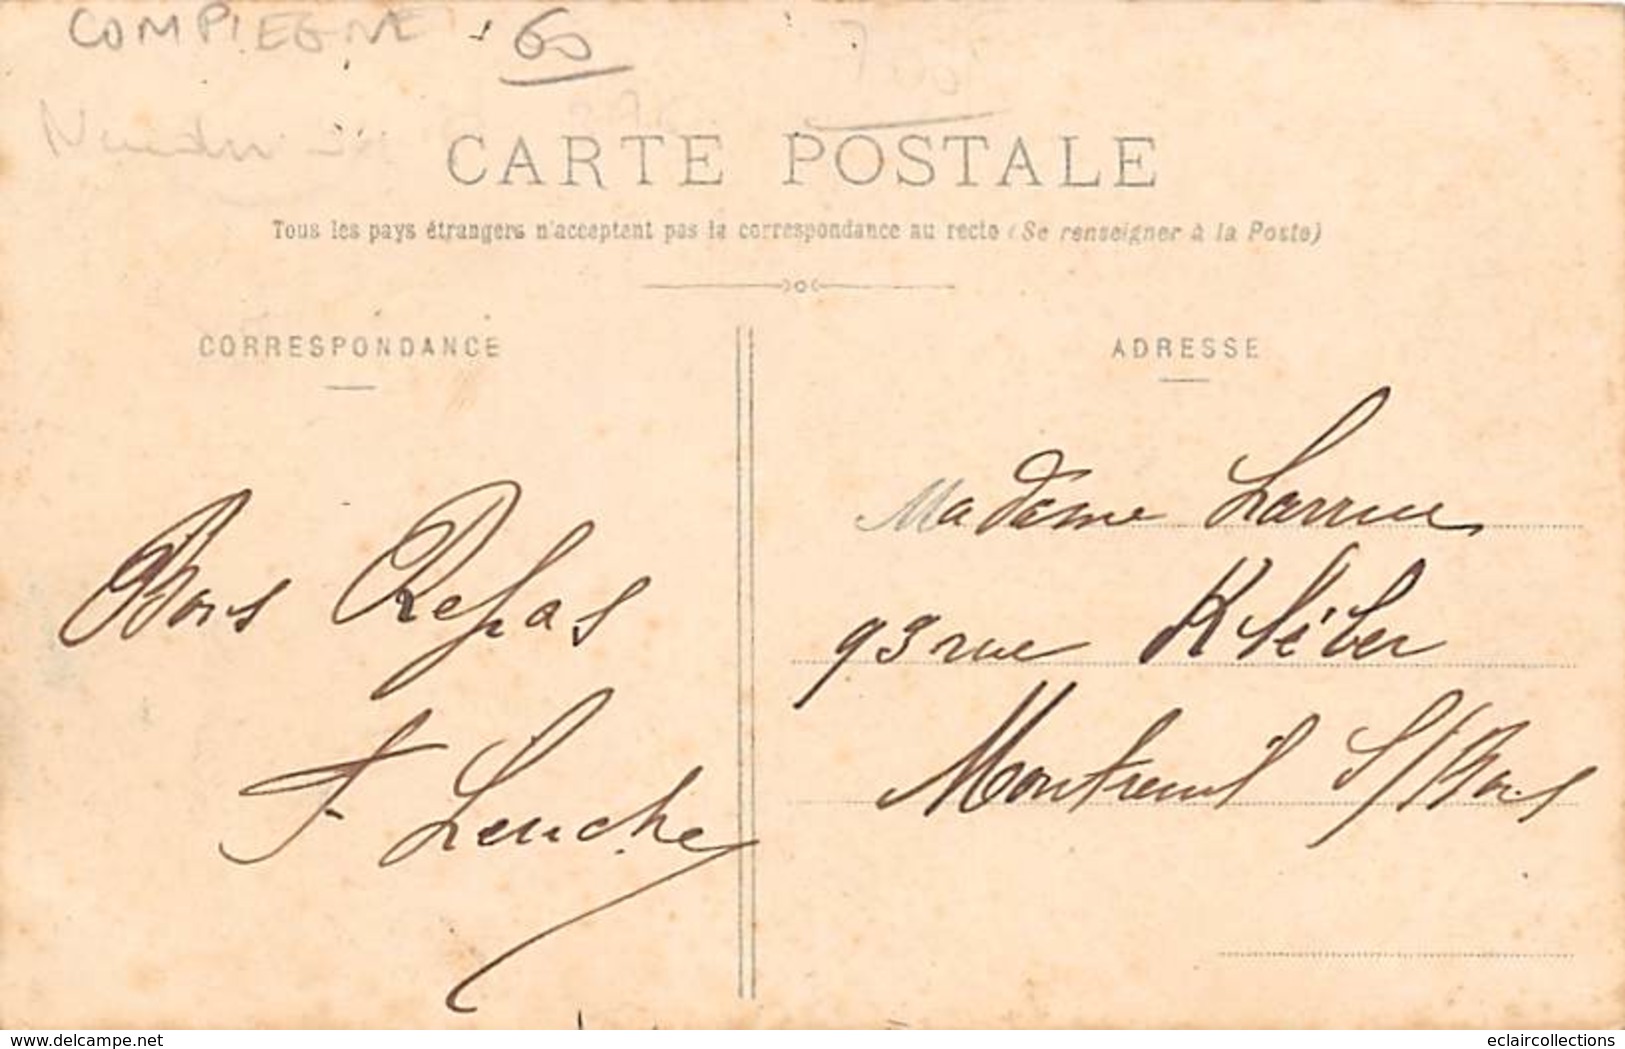 COMPIEGNE 60
CARTE POSTALE
Tous les pays étrangers n'acceptent pas la correspondance au recto (Se renseigner à la Poste)
CORRESPONDANCE
Bons Repas
Leuche
ADRESSE
Madame Larrue
93 rue Kléber
Montreuil S/Bois
delcampe.net
eclaircollections